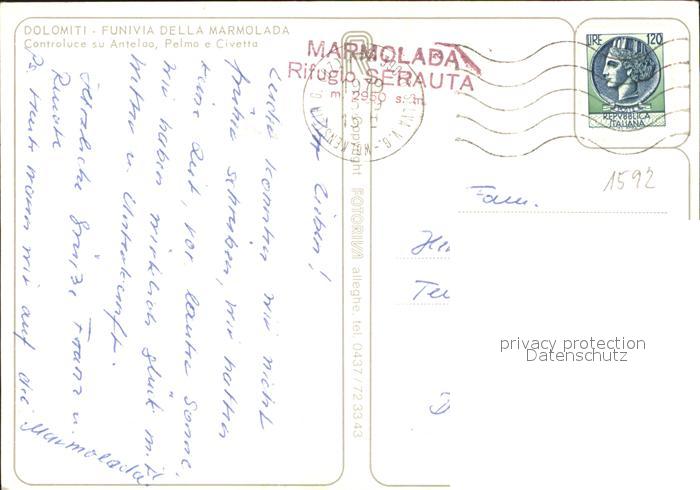 DOLOMITI - FUNIVIA DELLA MARMOLADA
Controluce su Antelao, Pelmo e Civetta
MARMOLADA
Rifugio SERAUTA
m. 2950 s. m.
LIRE 120
REPVBBLICA
ITALIANA
1592
Fam.
privacy protection
Datenschutz
Copyright FOTORIVA alleghe, tel. 0437/723343
Ihr Lieben!
Leider konnten wir nicht
früher schreiben, wir hatten
keine Zeit, vor lauter Sonne.
Wir haben wirklich Glück m.
Wetter u. Unterkunft.
Herzliche Grüße Franz u.
Renate
PS Heute waren wir auf der
Marmolada.